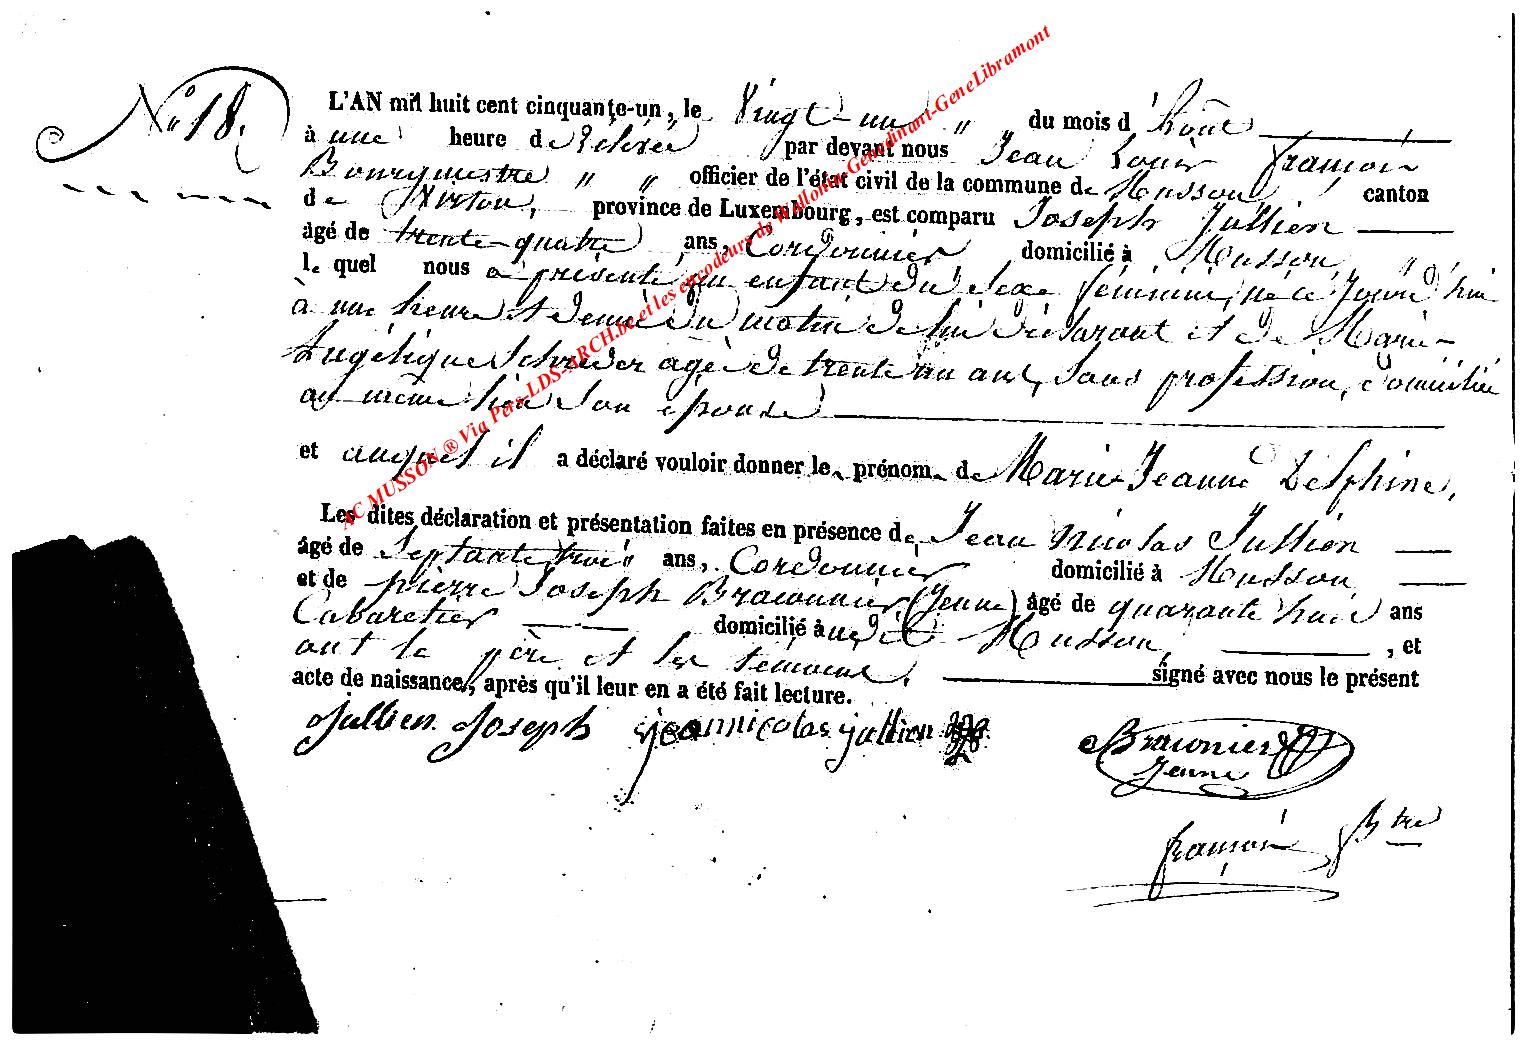 N° 18.
L'AN mil huit cent cinquante-un, le Vingt-un " du mois d'Août
à une heure de relevée par devant nous Jean Louis françois
Bourgmestre " " officier de l'état civil de la commune de Musson, canton
de Virton, province de Luxembourg, est comparu Joseph Jullien
âgé de trente-quatre ans, Cordonnier domicilié à Musson, "
le quel nous a présenté un enfant du sexe féminin, né ce jourd'hui
à une heure et demie du matin de lui déclarant et de Marie-
Angélique Schreder agée de trente un ans, sans profession, domiciliée
au même lieu son épouse
et auquel il a déclaré vouloir donner le prénom de Marie Jeanne Delphine,
Les dites déclaration et présentation faites en présence de Jean Nicolas Jullien
âgé de septante trois ans, Cordonnier domicilié à Musson,
et de pierre Joseph Braconnier (Jeune) âgé de quarante huit ans
Cabaretier domicilié à Musson, , et
ont le père et les témoins, signé avec nous le présent
acte de naissance, après qu'il leur en a été fait lecture.
Jullien Joseph jean nicolas jullien Braconnier
Jeune
françois Btre
AC MUSSON ® Via Pers-LDS-ARCH.be et les encodeurs de Wallonie-Genedinant-GeneLibramont